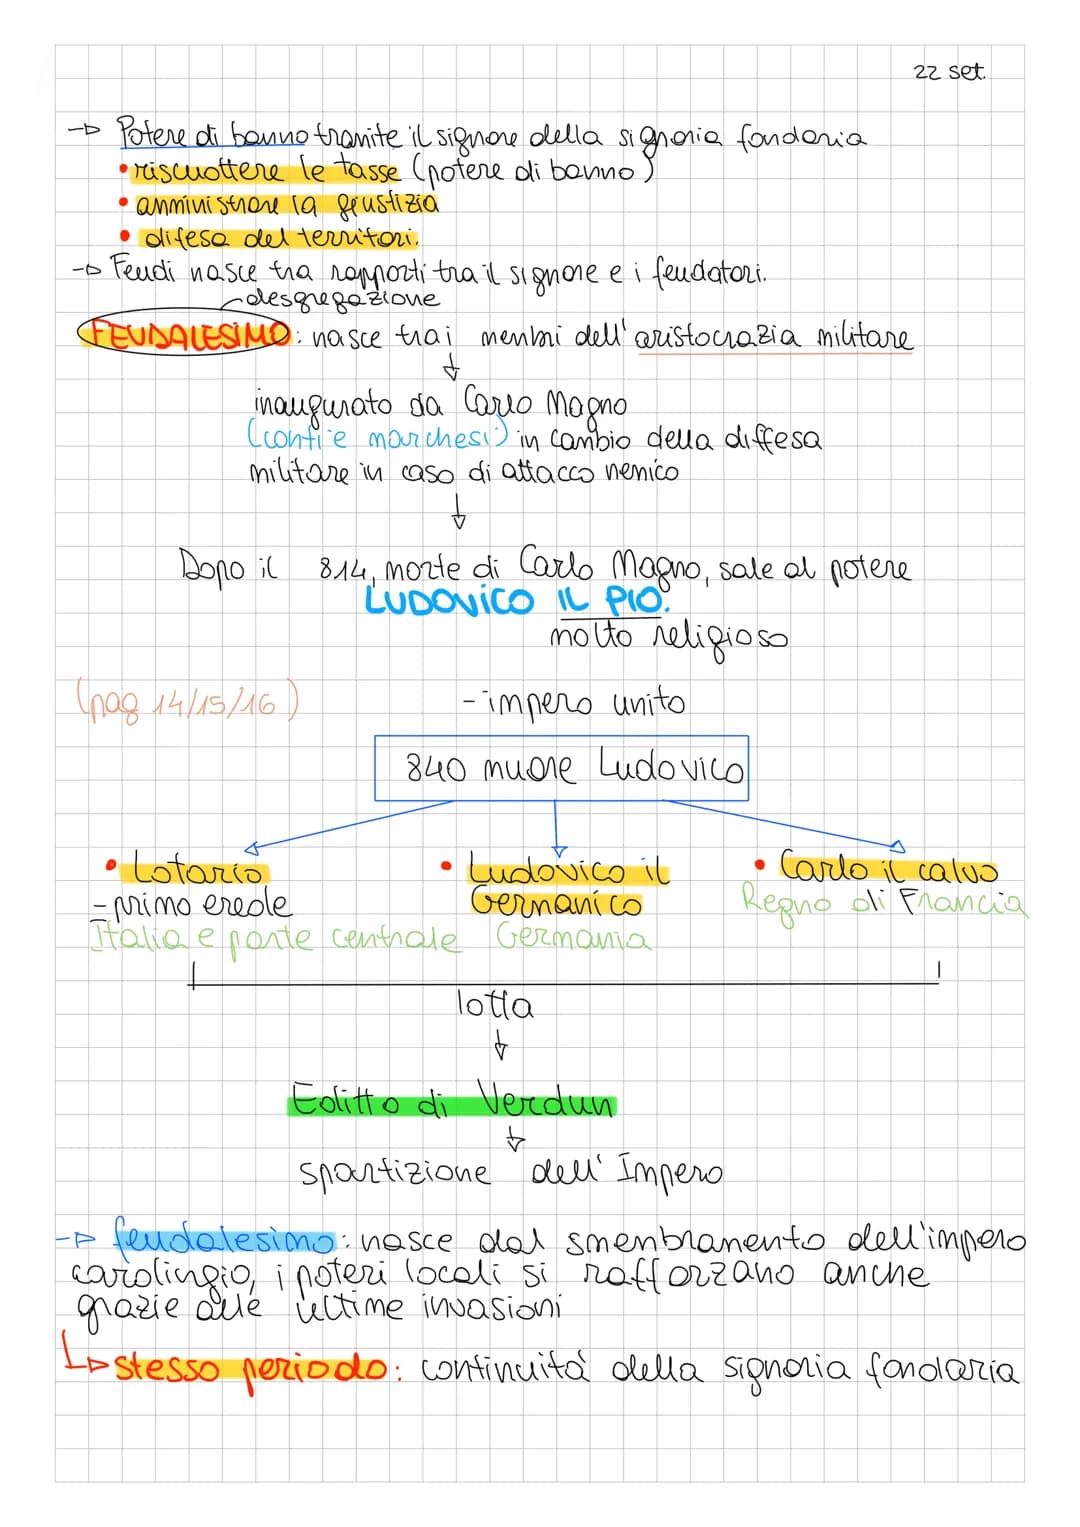 22 set.
→ Potere di banno tramite il signore della signoria fondaria
• riscuottere le tasse (potere di banno)
• amministrare la giustizia
• difesa del territori.
→ Feudi nasce tra rapporti tra il signore e i feudatori.
desgregazione
FEUDALESIMO: nasce trai menbri dell'aristocrazia militare
↓
inaugurato da Carlo Magno
(conti e marchesi) in cambio della diffesa
militare in caso di attacco nemico
↓
Dopo il 814, morte di Carlo Magno, sale al potere
LUDOVICO IL PIO.
molto religioso
(pag 14/15/16)
- impero unito
840 muore Ludovico
• Lotario • Ludovico il • Carlo il calvo
- primo erede Germanico Regno di Francia
Italia e parte centrale Germania
lotta
↓
Editto di Verdun
↓
spartizione dell'Impero
→ feudalesimo: nasce dal smenbramento dell'impero
carolingio, i poteri locali si rafforzano anche
grazie alle ultime invasioni
↳ stesso periodo: continuitá della signoria fondaria